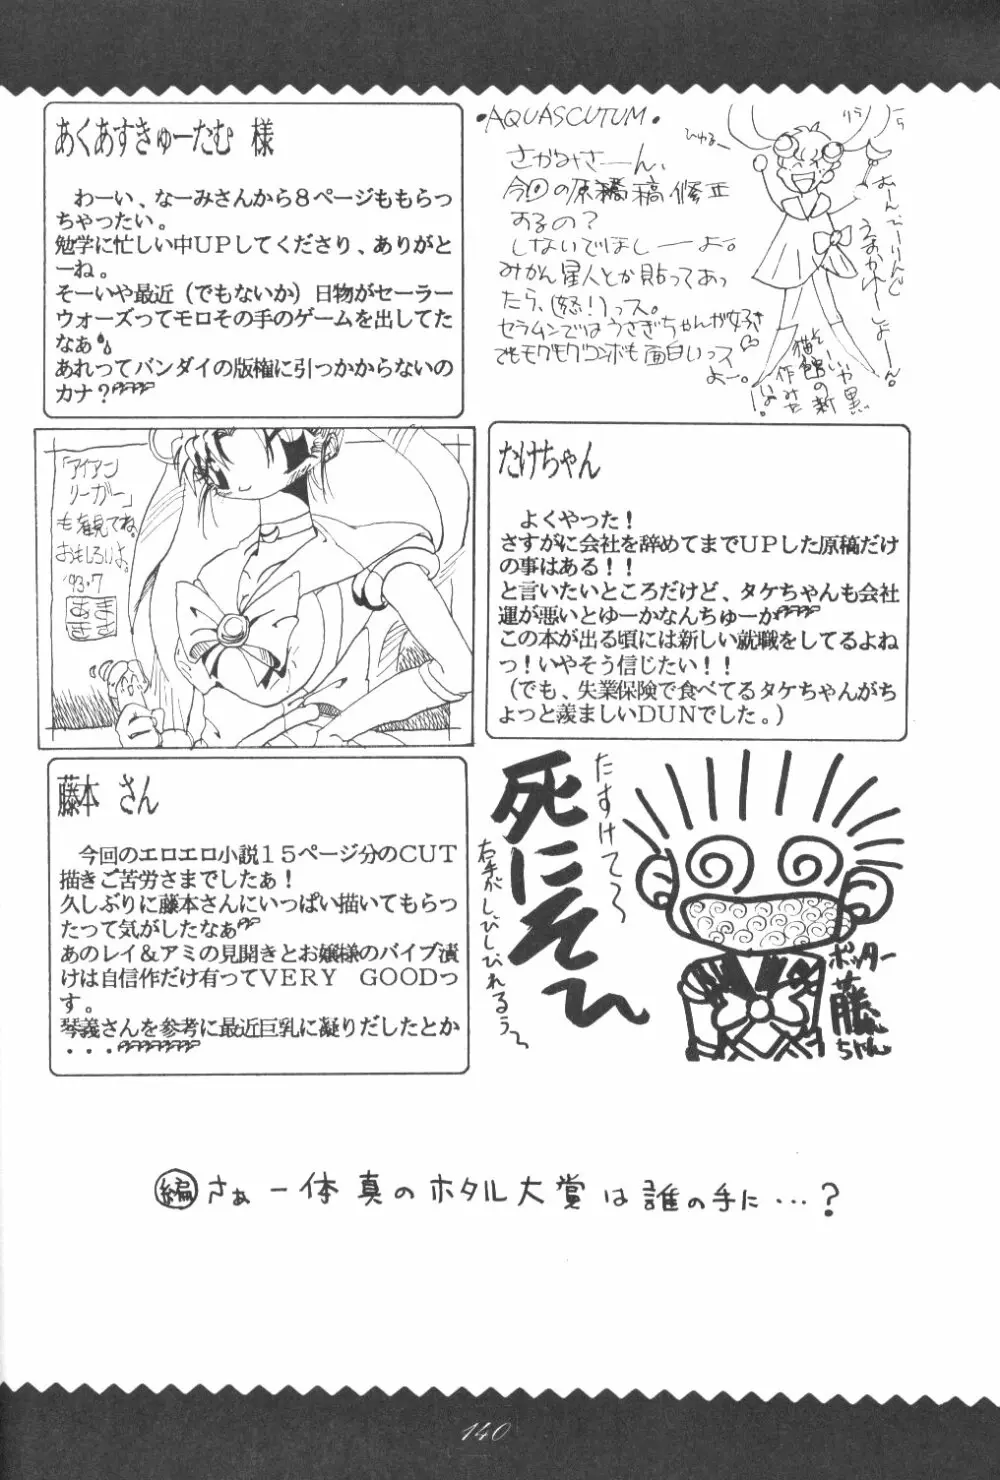 あくあすきゅーたむ 様
わーい、なーみさんから８ページももらっ
ちゃったい。
勉学に忙しい中ＵＰしてくださり、ありがと
ーね。
そーいや最近（でもないか）日物がセーラー
ウォーズってモロその手のゲームを出してた
なぁ
あれってバンダイの版権に引っかからないの
カナ？
•AQUASCUTUM•
さかみさーん、
今回の原稿稿修正
するの？
しないでほしーよ。
みかん星人とか貼ってあっ
たら、(怒！)っス。
セラムンではうさぎちゃんが好き
でもモグモグコンボも面白いっス
よー。
ひゅるー
そーいや黒
猫館の新
作みた
い！
「アイアン
リーガー」
も観てね。
おもしろいよ。
'93.7
たけちゃん
よくやった！
さすがに会社を辞めてまでＵＰした原稿だけ
の事はある！！
と言いたいところだけど、タケちゃんも会社
運が悪いとゆーかなんちゅーか
この本が出る頃には新しい就職をしてるよね
っ！いやそう信じたい！！
（でも、失業保険で食べてるタケちゃんがち
ょっと羨ましいＤＵＮでした。）
藤本 さん
今回のエロエロ小説１５ページ分のＣＵＴ
描きご苦労さまでしたぁ！
久しぶりに藤本さんにいっぱい描いてもらっ
たって気がしたなぁ
あのレイ＆アミの見開きとお嬢様のバイブ漬
けは自信作だけ有ってＶＥＲＹ ＧＯＯＤっ
す。
琴義さんを参考に最近巨乳に凝りだしたとか
・・・
たすけて〜
死にそひ
右手がしびしびれるぅ〜
ポッター
藤
ちゃん
編 さぁ 一体 真の ホタル大賞 は 誰の手に…？
140